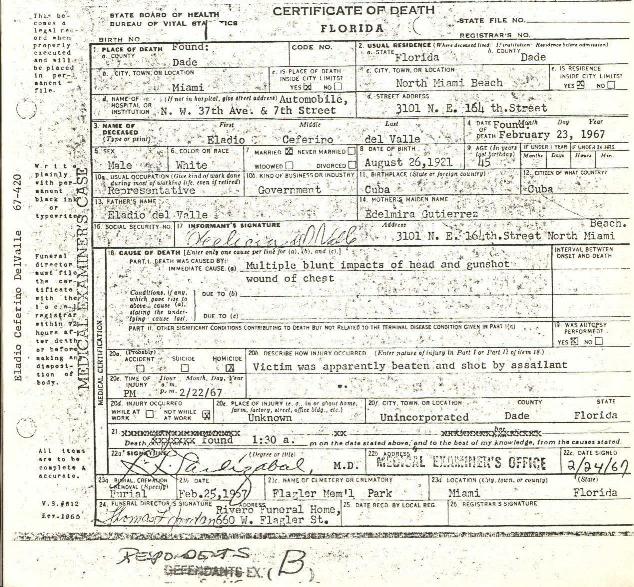 CERTIFICATE OF DEATH
STATE BOARD OF HEALTH
BUREAU OF VITAL STATISTICS
FLORIDA
STATE FILE NO.
REGISTRAR'S NO.
BIRTH NO.
This becomes a legal record when properly executed and will be placed in permanent file.
Write plainly with permanent black ink or typewriter
Funeral director must file the certificate with the local registrar within 72 hours after death or before making any disposition of body.
All items are to be complete & accurate.
V.S. #812
Rev. 1965
Eladio Ceferino DelValle 67-420
MEDICAL EXAMINER'S CASE
MEDICAL CERTIFICATION
1. PLACE OF DEATH Found:
a. COUNTY
Dade
CODE NO.
2. USUAL RESIDENCE (Where deceased lived. If institution: Residence before admission)
a. STATE
Florida
b. COUNTY
Dade
b. CITY, TOWN, OR LOCATION
Miami
c. IS PLACE OF DEATH INSIDE CITY LIMITS?
YES NO
c. CITY, TOWN, OR LOCATION
North Miami Beach
e. IS RESIDENCE INSIDE CITY LIMITS?
YES NO
d. NAME OF HOSPITAL OR INSTITUTION (If not in hospital, give street address) Automobile,
N. W. 37th Ave. & 7th Street
d. STREET ADDRESS
3101 N. E. 164 th.Street
3. NAME OF DECEASED (Type or print)
First Middle Last
Eladio Ceferino del Valle
4. DATE OF DEATH Found Month Day Year
February 23, 1967
5. SEX
Male
6. COLOR OR RACE
White
7. MARRIED NEVER MARRIED
WIDOWED DIVORCED
8. DATE OF BIRTH
August 26,1921
9. AGE (In years last birthday)
45
IF UNDER 1 YEAR
Months Days
IF UNDER 24 HRS.
Hours Min.
10a. USUAL OCCUPATION (Give kind of work done during most of working life, even if retired)
Representative
10b. KIND OF BUSINESS OR INDUSTRY
Government
11. BIRTHPLACE (State or foreign country)
Cuba
12. CITIZEN OF WHAT COUNTRY?
Cuba
13. FATHER'S NAME
Eladio del Valle
14. MOTHER'S MAIDEN NAME
Edelmira Gutierrez
16. SOCIAL SECURITY NO.
17 INFORMANT'S SIGNATURE
Address
Beach.
3101 N.E. 164th.Street North Miami
18. CAUSE OF DEATH [Enter only one cause per line for (a), (b), and (c).]
INTERVAL BETWEEN ONSET AND DEATH
PART I. DEATH WAS CAUSED BY:
IMMEDIATE CAUSE (a) Multiple blunt impacts of head and gunshot
wound of chest
Conditions, if any, which gave rise to above cause (a), stating the underlying cause last.
DUE TO (b)
DUE TO (c)
PART II. OTHER SIGNIFICANT CONDITIONS CONTRIBUTING TO DEATH BUT NOT RELATED TO THE TERMINAL DISEASE CONDITION GIVEN IN PART I(a)
19 WAS AUTOPSY PERFORMED?
YES NO
20a. (Probably)
ACCIDENT SUICIDE HOMICIDE
20b. DESCRIBE HOW INJURY OCCURRED (Enter nature of injury in Part I or Part II of item 18.)
Victim was apparently beaten and shot by assailant
20c. TIME OF INJURY Hour Month, Day, Year
a.m.
PM p.m. 2/22/67
20d. INJURY OCCURRED
WHILE AT WORK NOT WHILE AT WORK
20e. PLACE OF INJURY (e. g., in or about home, farm, factory, street, office bldg., etc.)
Unknown
20f. CITY, TOWN, OR LOCATION COUNTY STATE
Unincorporated Dade Florida
21.
Death found 1:30 a. m on the date stated above, and to the best of my knowledge, from the causes stated
22a. SIGNATURE (Degree or title)
M.D.
22b ADDRESS
MEDICAL EXAMINER'S OFFICE
22c. DATE SIGNED
2/24/67
23a. BURIAL, CREMATION REMOVAL (Specify)
Burial
23b. DATE
Feb.25,1967
23c. NAME OF CEMETERY OR CREMATORY
Flagler Mem'l Park
23d LOCATION (City, town, or county) (State)
Miami Florida
24. FUNERAL DIRECTOR'S SIGNATURE ADDRESS
Rivero Funeral Home,
660 W. Flagler St.
25 DATE RECD. BY LOCAL REG.
26. REGISTRAR'S SIGNATURE
RESPONDENTS
DEFENDANTS EX. (B)